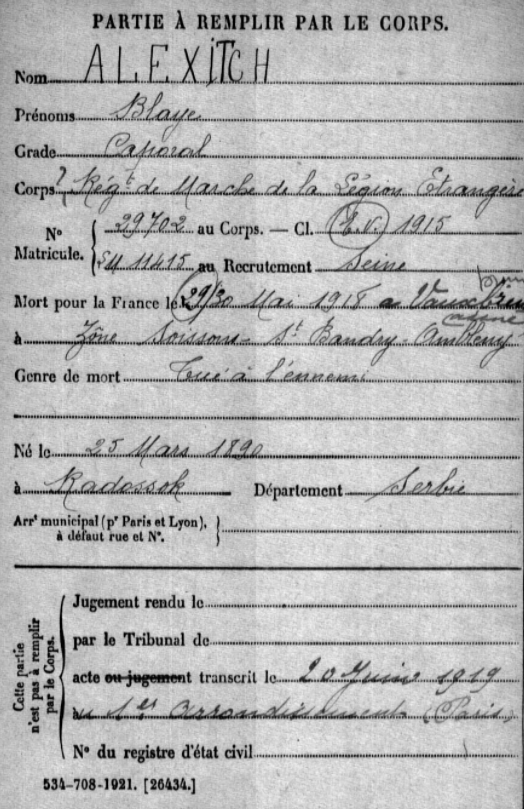 PARTIE À REMPLIR PAR LE CORPS.
Nom ALEXITCH
Prénoms Blaye
Grade Caporal
Corps Régt de Marche de la Légion Etrangère
N° Matricule. 29702 au Corps. — Cl. E.V. 1915
SM 11415 au Recrutement Seine
Mort pour la France le 29/30 Mai 1918 a Vauxbuin
à Zône Soissons - St Bandry - Ambleny
Genre de mort Tué à l'ennemi
Né le 25 Mars 1890
à Radossok Département Serbie
Arrt municipal (pr Paris et Lyon),
à défaut rue et N°.
Cette partie
n'est pas à remplir
par le Corps.
Jugement rendu le
par le Tribunal de
acte ou jugement transcrit le 20 Juin 1919
au 1er arrondissement (Paris)
N° du registre d'état civil
534-708-1921. [26434.]